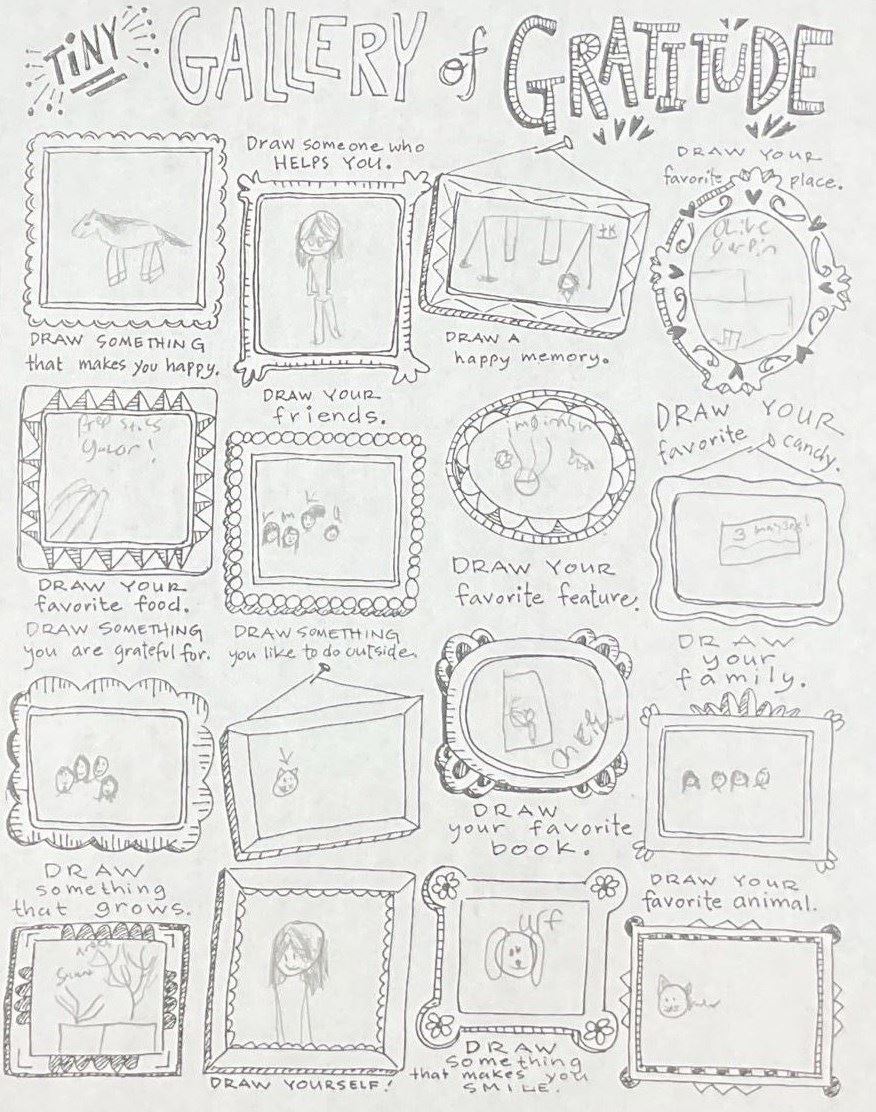 TINY GALLERY of GRATITUDE
Draw someone who
HELPS YOU.
DRAW YOUR
favorite place.
DRAW SOMETHING
that makes you happy.
DRAW A
happy memory.
DRAW YOUR
friends.
DRAW YOUR
favorite candy.
DRAW YOUR
favorite food.
DRAW YOUR
favorite feature.
DRAW SOMETHING
you are grateful for.
DRAW SOMETHING
you like to do outside.
DRAW
your
family.
DRAW
your favorite
book.
DRAW
something
that grows.
DRAW YOUR
favorite animal.
urf
DRAW YOURSELF!
DRAW
something
that makes you
SMILE.